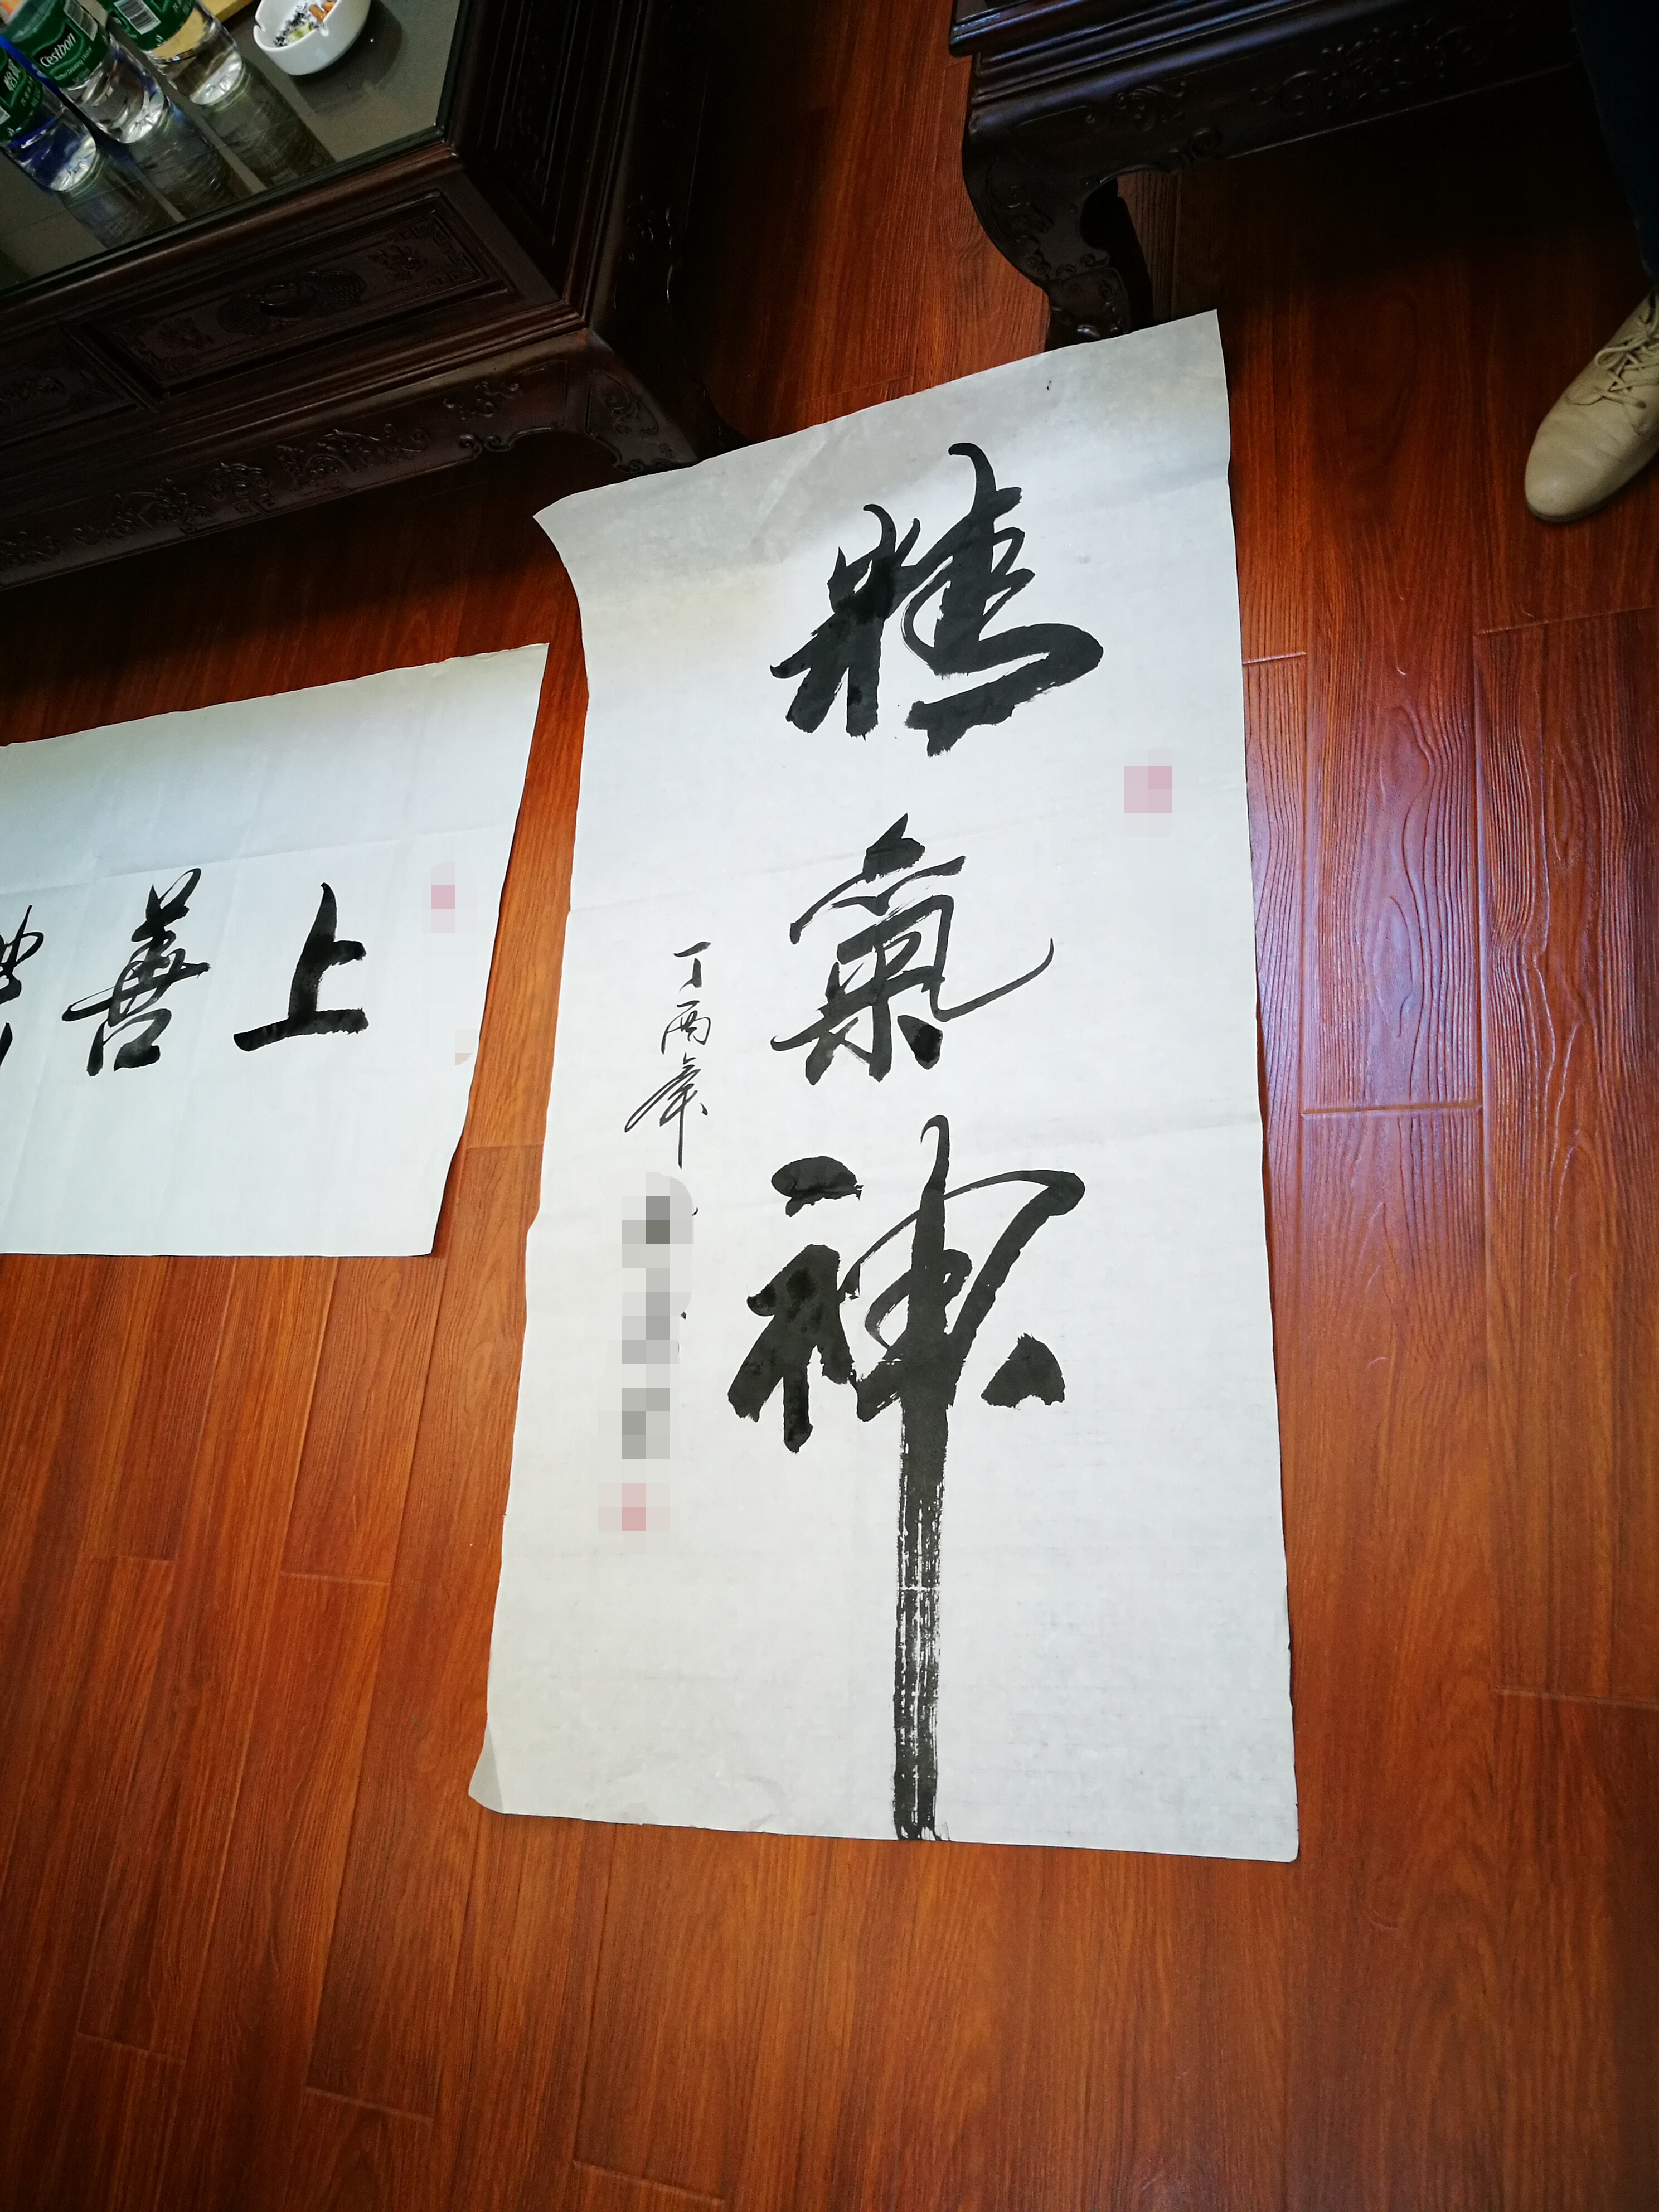 精氣神
丁酉年
上善
Cestbon